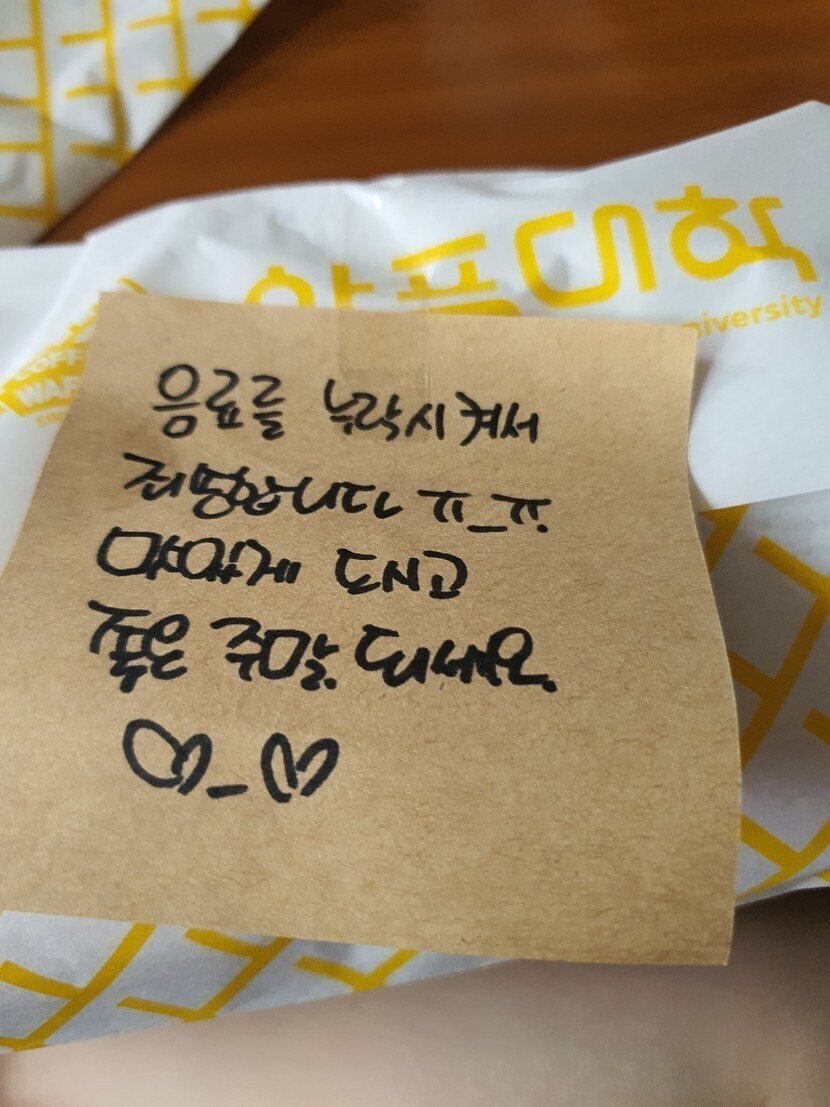 와플대학
niversity
COFF
WAF
음료를 누락시켜서
죄송합니다 ㅠ_ㅠ.
맛있게 드시고
좋은 주말 되세요.
♡_♡